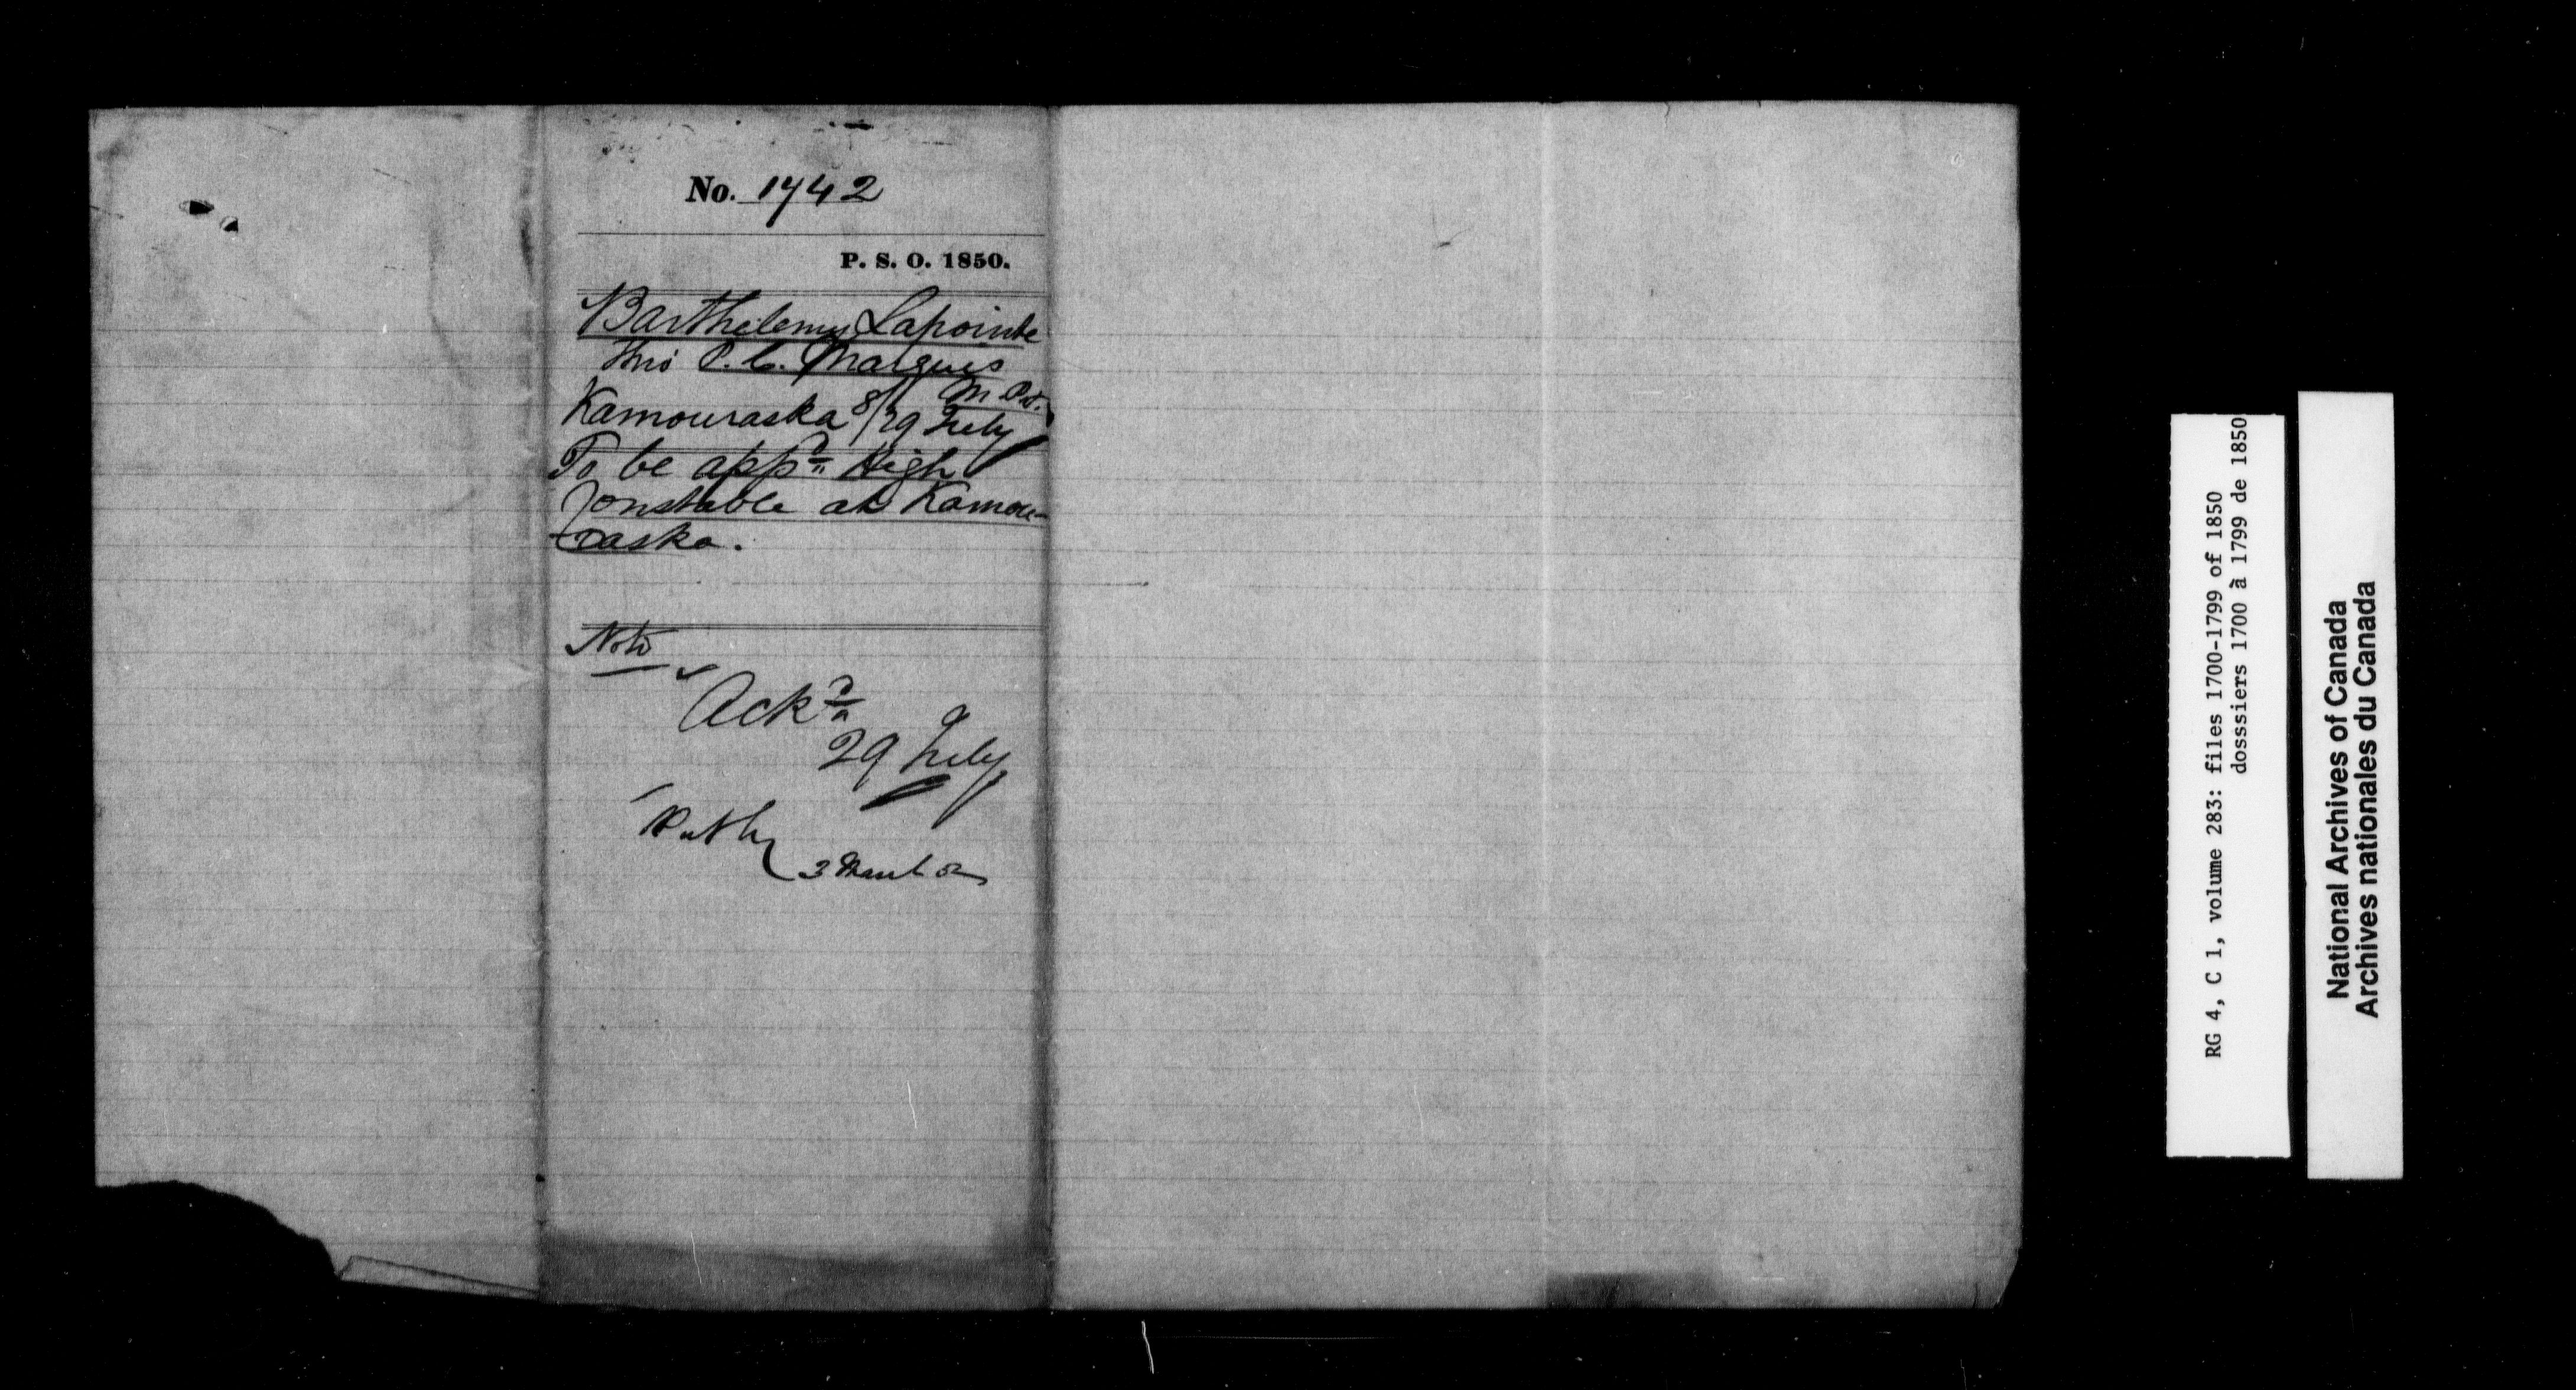 No. 1742
P. S. O. 1850.
Barthelemy Lapointe
thro' P. C. Marquis
M.P.P.
Kamouraska 8/29 July
To be appd High
Constable at Kamou-
raska.
Note
Ackd
29 July
3 March
RG 4, C 1, volume 283: files 1700-1799 of 1850
dosssiers 1700 à 1799 de 1850
National Archives of Canada
Archives nationales du Canada